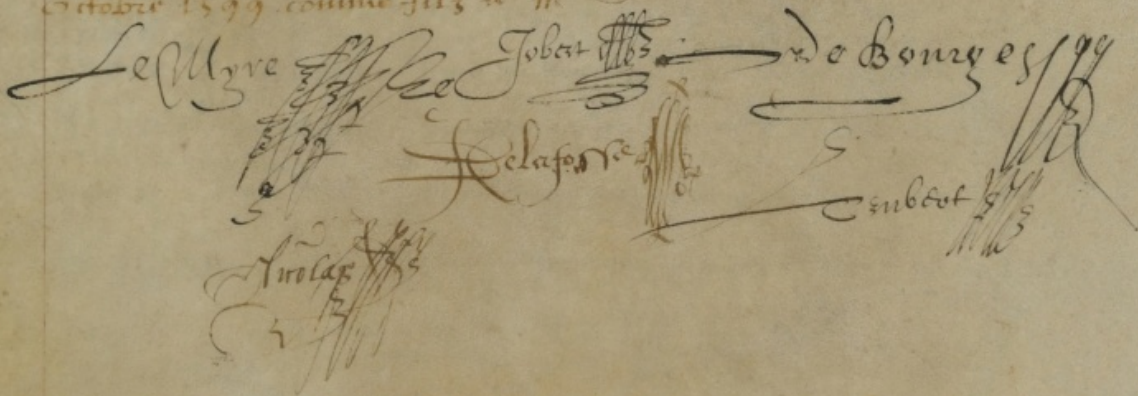 Octobre 1599 comme filz de Mr
Le Myre Jobert de Bourges
Delafosse
Nicolas